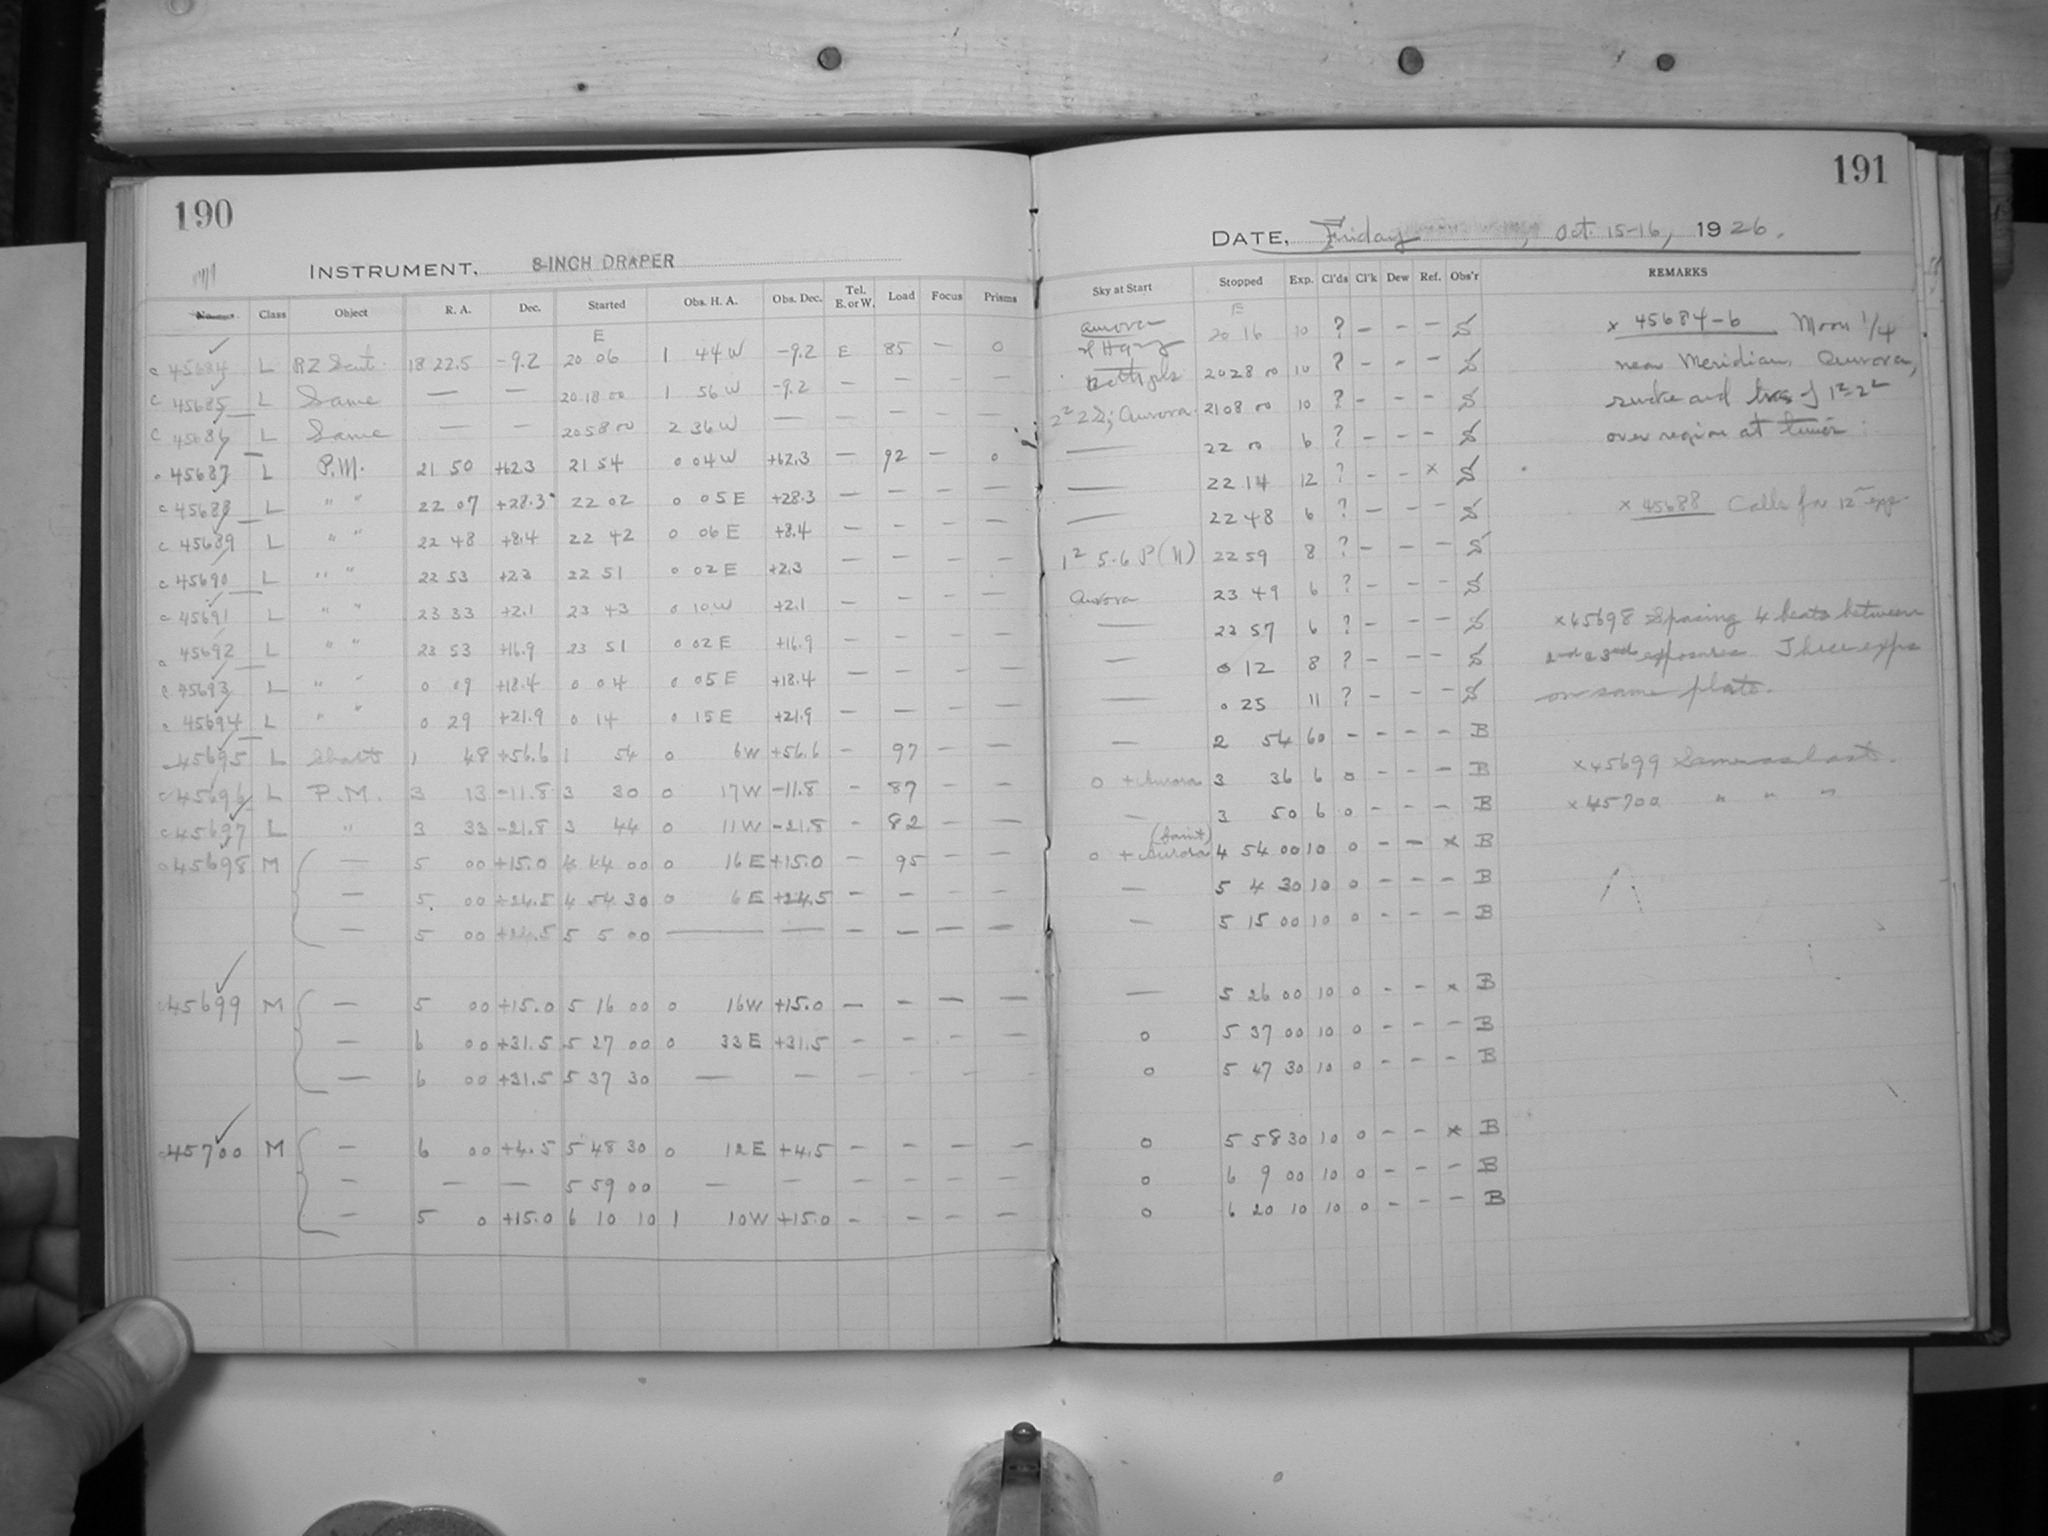 190
INSTRUMENT, 8-INCH DRAPER
Class Object R. A. Dec. Started Obs. H. A. Obs. Dec. Tel. E. or W. Load Focus Prisms
E
c 45684 L RZ Scut. 18 22.5 -9.2 20 06 1 44 W -9.2 E 85 — 0
c 45685 L Same — — 20 18 00 1 56 W -9.2 — — — —
c 45686 L Same — — 20 58 00 2 36 W — — — — —
c 45687 L P.M. 21 50 +62.3 21 54 0 04 W +62.3 — 92 — 0
c 45688 L " " 22 07 +28.3 22 02 0 05 E +28.3 — — — —
c 45689 L " " 22 48 +8.4 22 42 0 06 E +8.4 — — — —
c 45690 L " " 22 53 +2.3 22 51 0 02 E +2.3 — — — —
c 45691 L " " 23 33 +2.1 23 43 0 10 W +2.1 — — — —
c 45692 L " " 23 53 +16.9 23 51 0 02 E +16.9 — — — —
c 45693 L " " 0 09 +18.4 0 04 0 05 E +18.4 — — — —
c 45694 L " " 0 29 +21.9 0 14 0 15 E +21.9 — — — —
45695 L 1 48 +56.6 1 54 0 6 W +56.6 — 97 — —
c 45696 L P.M. 3 13 -11.8 3 30 0 17 W -11.8 — 87 — —
c 45697 L " 3 33 -21.8 3 44 0 11 W -21.8 — 82 — —
c 45698 M — 5 00 +15.0 4 44 00 0 16 E +15.0 — 95 — —
— 5 00 +24.5 4 54 30 0 6 E +24.5 — — — —
— 5 00 +24.5 5 5 00 — — — — — —
45699 M — 5 00 +15.0 5 16 00 0 16 W +15.0 — — — —
— 6 00 +31.5 5 27 00 0 33 E +31.5 — — — —
— 6 00 +31.5 5 37 30 — — — — — —
45700 M — 6 00 +4.5 5 48 30 0 12 E +4.5 — — — —
— — — 5 59 00 — — — — — —
— 5 0 +15.0 6 10 10 1 10 W +15.0 — — — —
191
DATE, Friday, Oct. 15-16, 1926.
Sky at Start Stopped Exp. Cl'ds Cl'k Dew Ref. Obs'r REMARKS
E
Aurora 20 16 10 ? — — — S
20 28 00 10 ? — — — S
Aurora 21 08 00 10 ? — — — S
— 22 00 6 ? — — — S
— 22 14 12 ? — — x S
— 22 48 6 ? — — — S
22 59 8 ? — — — S
Aurora 23 49 6 ? — — — S
— 23 57 6 ? — — — S
— 0 12 8 ? — — — S
— 0 25 11 ? — — — S
— 2 54 60 — — — — B
0 + Aurora 3 36 6 0 — — — B
— 3 50 6 0 — — — B
(faint)
0 + Aurora 4 54 00 10 0 — — x B
— 5 4 30 10 0 — — — B
— 5 15 00 10 0 — — — B
— 5 26 00 10 0 — — x B
0 5 37 00 10 0 — — — B
0 5 47 30 10 0 — — — B
0 5 58 30 10 0 — — x B
0 6 9 00 10 0 — — — B
0 6 20 10 10 0 — — — B
x 45684-6 Moon 1/4
near Meridian. Aurora,
smoke and
over region at
x 45688 Calls for 12 m exp.
x 45698 Spacing 4 beats between
2nd & 3rd exposures Three exps
on same plate.
x 45699 Same as last.
x 45700 " " "